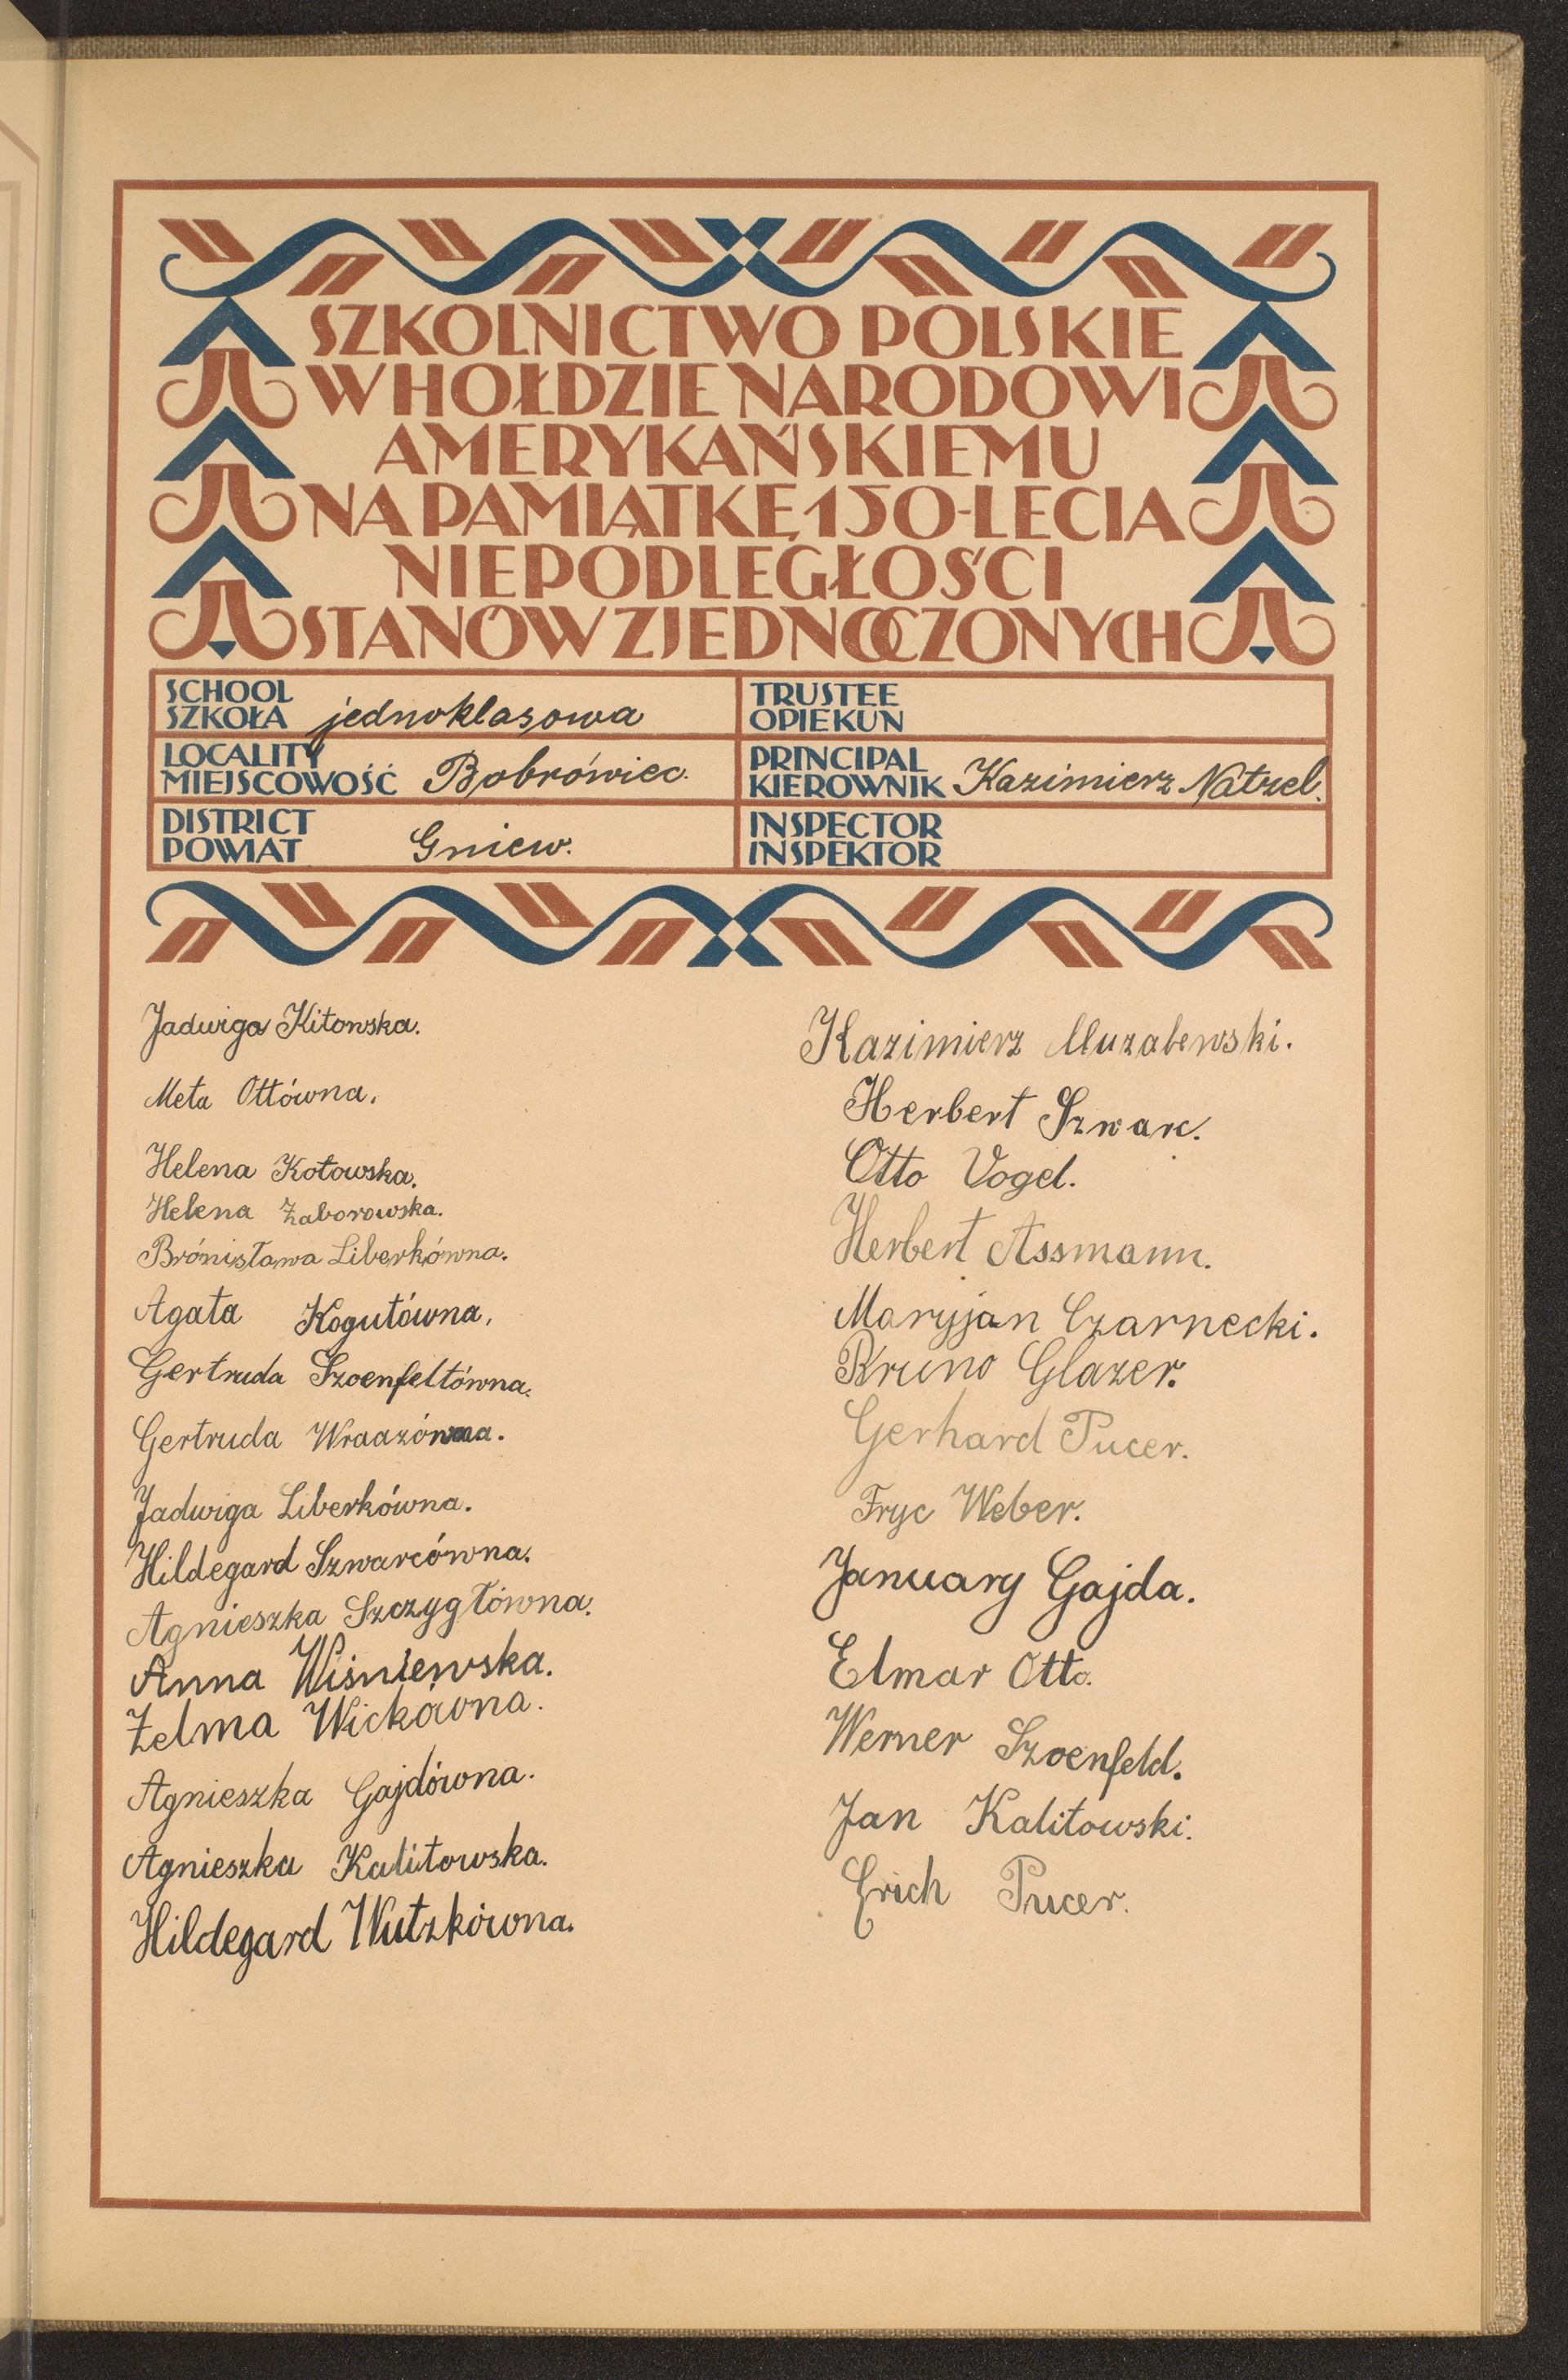 SZKOLNICTWO POLSKIE
W HOŁDZIE NARODOWI
AMERYKAŃSKIEMU
NA PAMIĄTKĘ 150-LECIA
NIEPODLEGŁOŚCI
STANÓW ZJEDNOCZONYCH
SCHOOL
SZKOŁA jednoklasowa
TRUSTEE
OPIEKUN
LOCALITY
MIEJSCOWOŚĆ Bobrówiec.
PRINCIPAL
KIEROWNIK Kazimierz Natzel.
DISTRICT
POWIAT Gniew.
INSPECTOR
INSPEKTOR
Jadwiga Kitowska.
Meta Ottówna.
Helena Kotowska.
Helena Zaborowska.
Brónisława Liberkówna.
Agata Kogutówna,
Gertruda Szoenfeltówna.
Gertruda Wraazówna.
Jadwiga Liberkówna.
Hildegard Szwarcówna.
Agnieszka Szczygłówna.
Anna Wiśniewska.
Zelma Wickówna.
Agnieszka Gajdówna.
Agnieszka Kalitowska.
Hildegard Wutzkówna.
Kazimierz Muzalewski.
Herbert Szwarc.
Otto Vogel.
Herbert Assmann.
Maryjan Czarnecki.
Bruno Glazer.
Gerhard Pucer.
Fryc Weber.
January Gajda.
Elmar Otto.
Werner Szoenfeld.
Jan Kalitowski.
Erich Pucer.